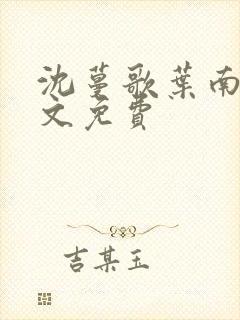 沈蔓歌葉南
文免費
吉某玉